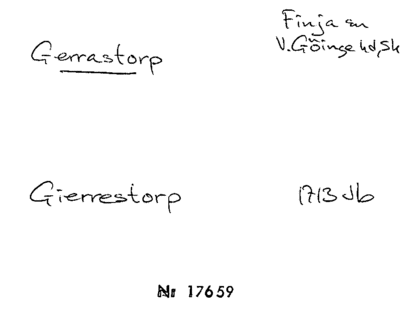 Gerrastorp
Finja sn
V.Göinge hd, Sk
Gierrestorp
1713 Jb
Nr 17659